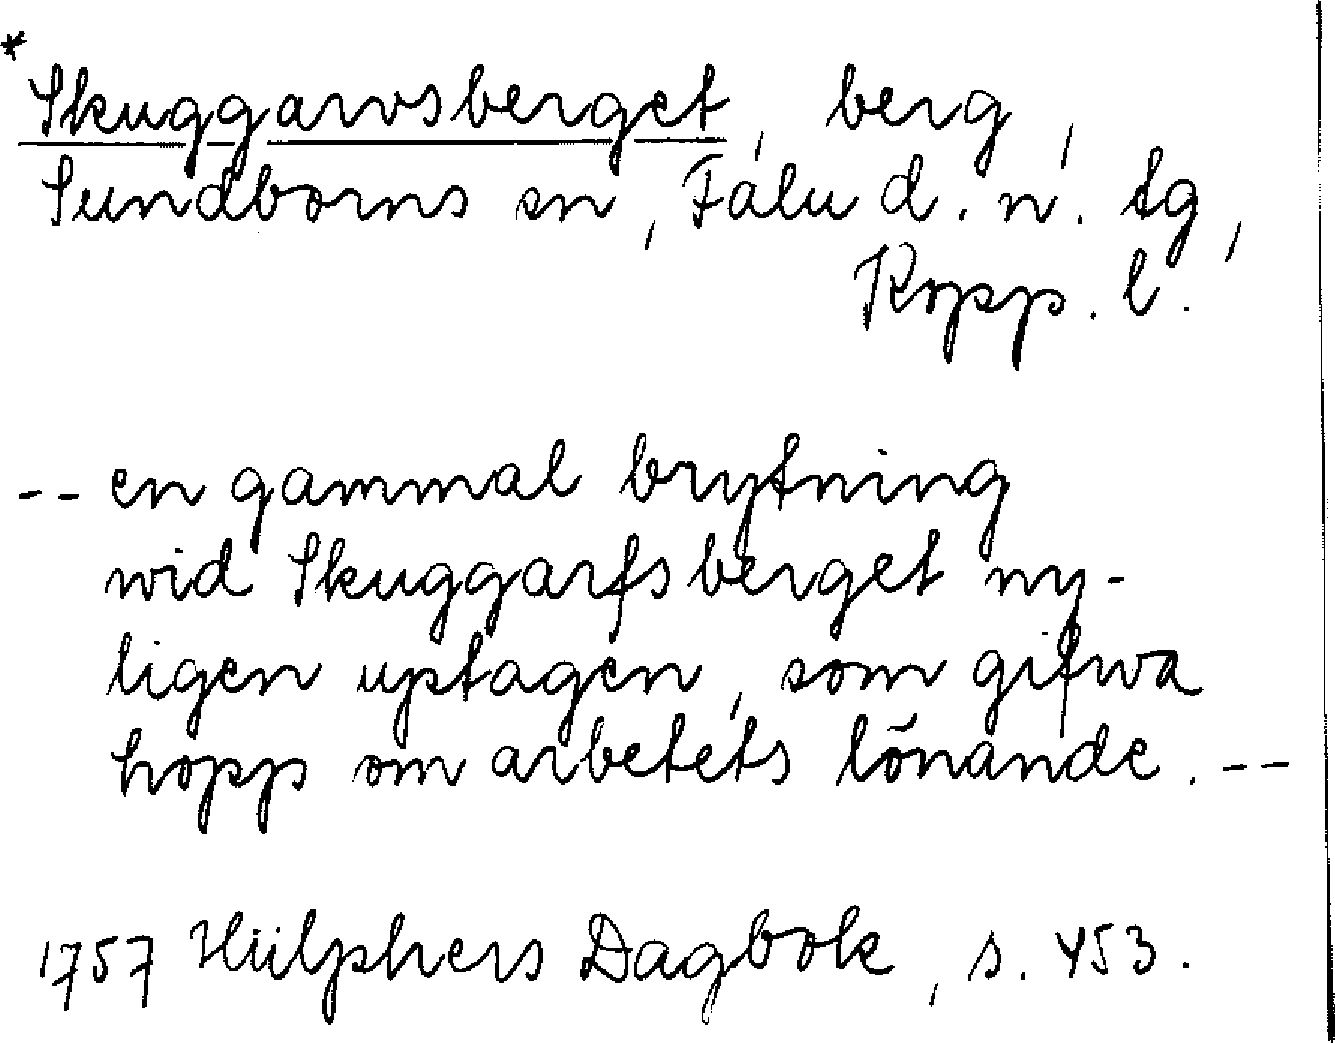 *
Skuggarvsberget, berg,
Sundborns sn, Falu d. n. tg,
Kopp. l.
-- en gammal brytning
wid Skuggarfsberget ny-
ligen uptagen, som gifwa
hopp om arbetets lönande. --
1757 Hülphers Dagbok, s. 453.